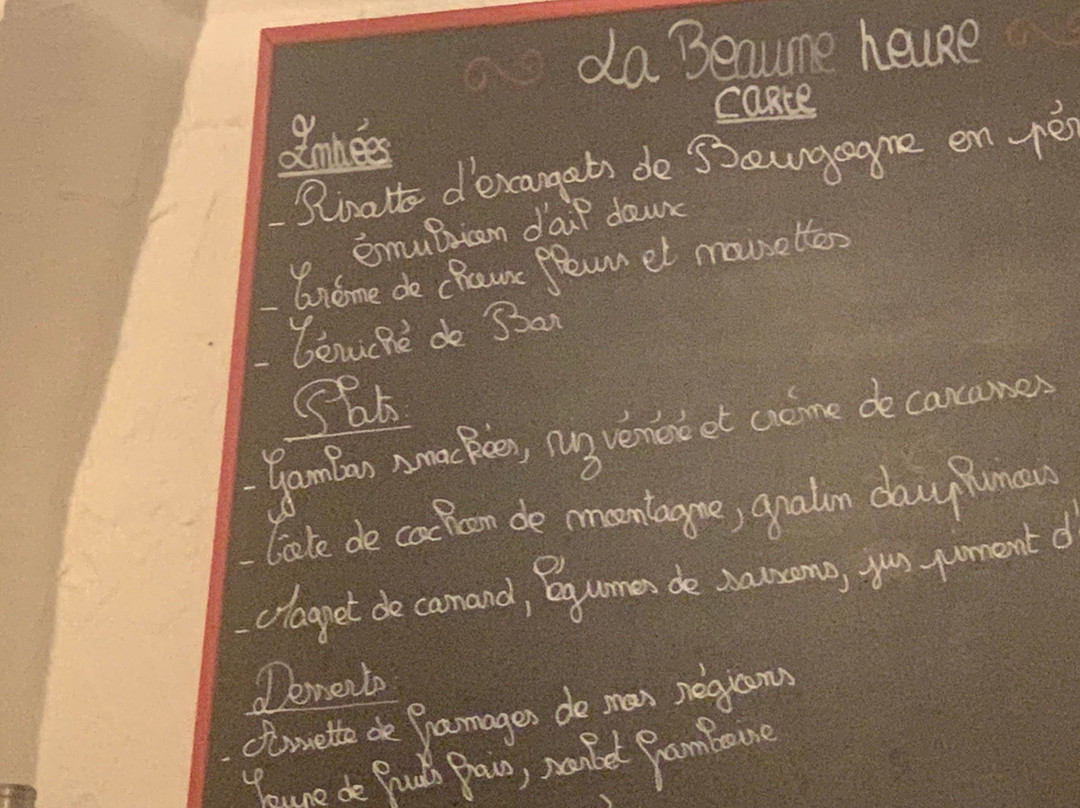 La Beaume heure
Carte
Entrées
- Risotto d'escargots de Bourgogne en
émulsion d'ail doux
- Crème de choux fleurs et noisettes
- Céviché de Bar
Plats:
- Gambas snackées, riz vénéré et crème de carcasses
- Côte de cochon de montagne, gratin dauphinois
- Magret de canard, légumes de saisons, jus piment d'
Desserts:
- Assiette de fromages de nos régions
Soupe de fruits frais, sorbet framboise